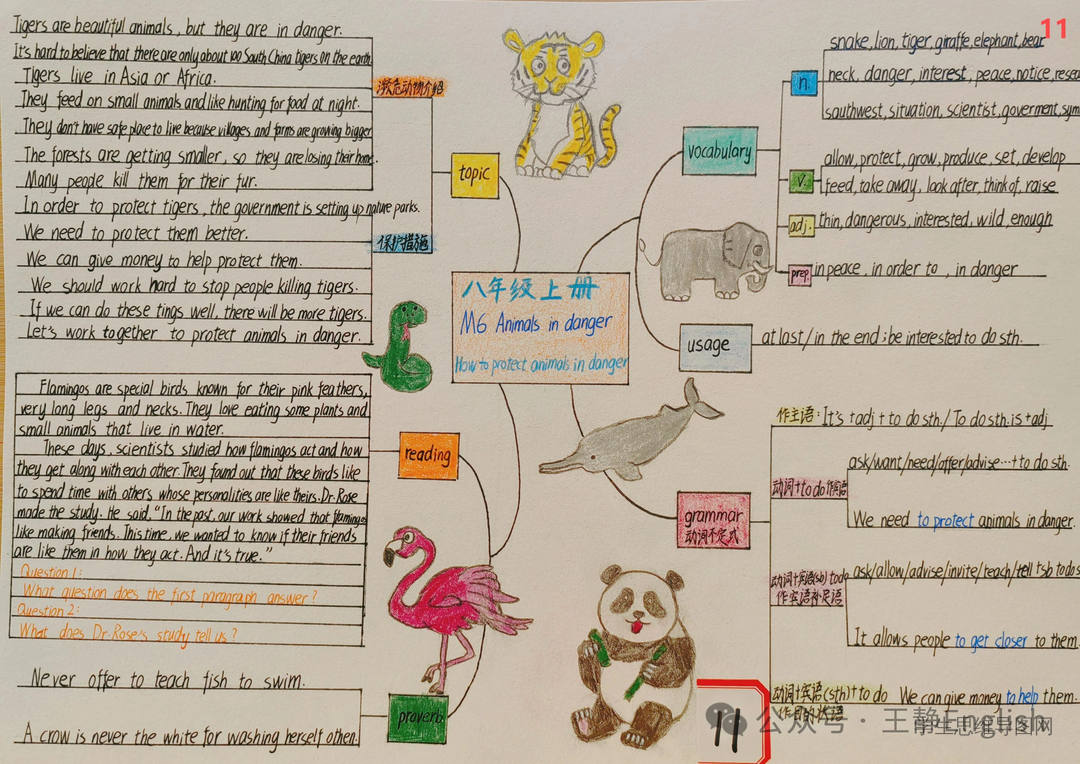 Tigers are beautiful animals, but they are in danger.
It's hard to believe that there are only about 100 South China tigers on the earth.
Tigers live in Asia or Africa.
They feed on small animals and like hunting for food at night.
They don't have safe place to live because villages and farms are growing bigger
The forests are getting smaller, so they are losing their home.
Many people kill them for their fur.
濒危动物介绍
In order to protect tigers, the government is setting up nature parks.
We need to protect them better.
We can give money to help protect them.
We should work hard to stop people killing tigers.
If we can do these tings well, there will be more tigers.
Let's work together to protect animals in danger.
保护措施
topic
Flamingos are special birds known for their pink feathers,
very long legs and necks. They love eating some plants and
small animals that live in water.
These days, scientists studied how flamingos act and how
they get along with each other. They found out that these birds like
to spend time with others whose personalities are like theirs. Dr. Rose
made the study. He said, "In the past, our work showed that flamingos
like making friends. This time, we wanted to know if their friends
are like them in how they act. And it's true."
Question 1:
What question does the first paragraph answer?
Question 2:
What does Dr. Rose's study tell us?
reading
Never offer to teach fish to swim.
A crow is never the white for washing herself often.
proverb
八年级上册
M6 Animals in danger
How to protect animals in danger
11
vocabulary
n.
snake, lion, tiger, giraffe, elephant, bear
neck, danger, interest, peace, notice, resea
southwest, situation, scientist, goverment, sym
v.
allow, protect, grow, produce, set, develop
feed, take away, look after, think of, raise
adj.
thin, dangerous, interested, wild, enough
prep.
in peace, in order to, in danger
usage
at last/in the end; be interested to do sth.
grammar
动词不定式
作主语: It's +adj + to do sth./To do sth. is +adj
动词+to do 作宾语
ask/want/need/offer/advise…+to do sth.
We need to protect animals in danger.
动词+宾语(sb) to do
作宾语补足语
ask/allow/advise/invite/teach/tell +sb to do s
It allows people to get closer to them.
动词+宾语(sth)+to do
作目的状语
We can give money to help them.
11
公众号·王静English
学生思维导图网